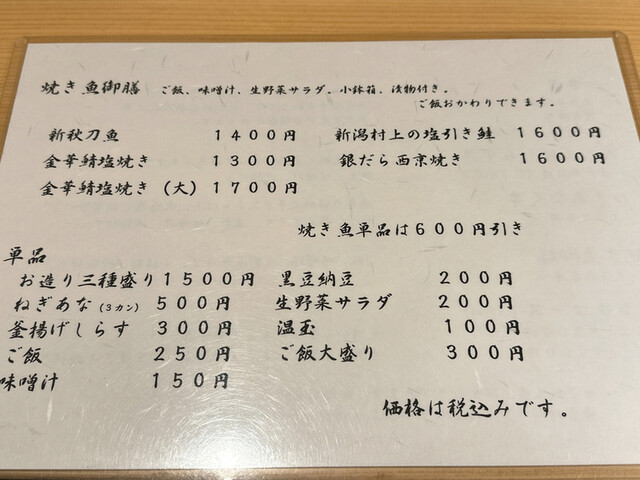 焼き魚御膳　ご飯、味噌汁、生野菜サラダ、小鉢箱、漬物付き。
ご飯おかわりできます。
新秋刀魚　１４００円　新潟村上の塩引き鮭　１６００円
金華鯖塩焼き　１３００円　銀だら西京焼き　１６００円
金華鯖塩焼き（大）１７００円
焼き魚単品は６００円引き
単品
お造り三種盛り１５００円　黒豆納豆　２００円
ねぎあな（３カン）５００円　生野菜サラダ　２００円
釜揚げしらす　３００円　温玉　１００円
ご飯　２５０円　ご飯大盛り　３００円
味噌汁　１５０円
価格は税込みです。